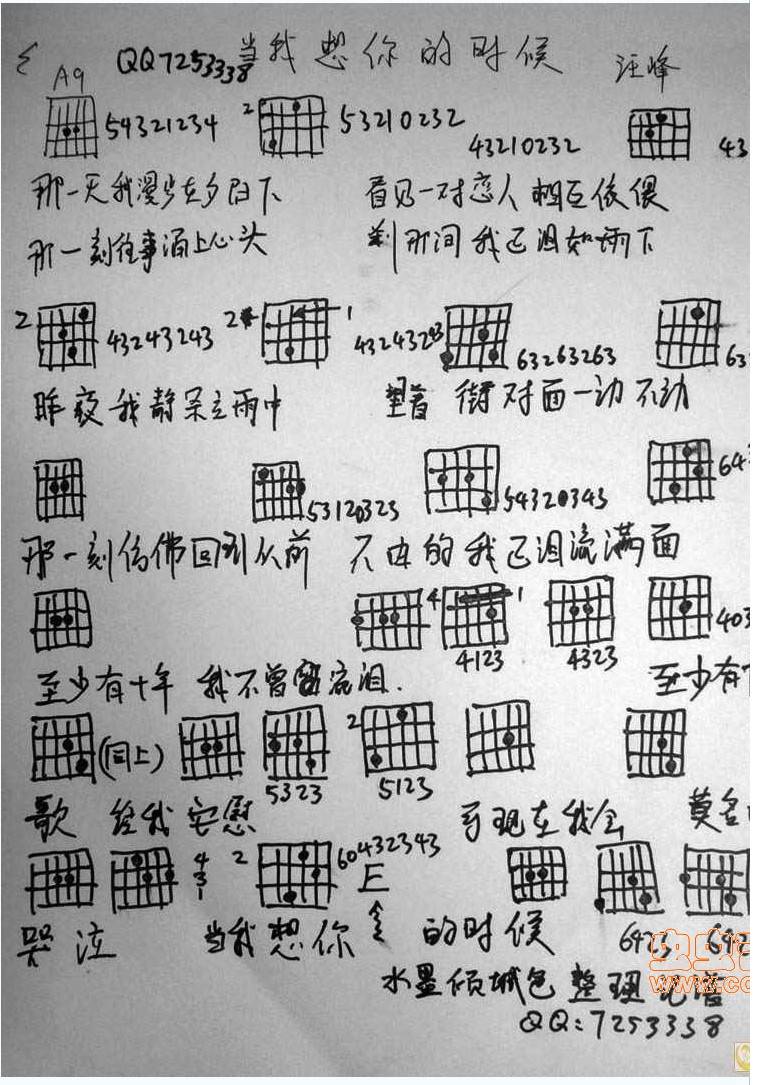 QQ7253338 当我想你的时候 汪峰
A9
54321234 2 53210232 43210232 43
那一天我漫步在夕阳下 看见一对恋人相互依偎
那一刻往事涌上心头 刹那间我已泪如雨下
2 43243243 2 1 43243243 63263263 63
昨夜我静呆立雨中 望着街对面一动不动
53120323 54320343 64
那一刻仿佛回到从前 不由的我已泪流满面
4 1 4123 4323 403
至少有十年 我不曾流泪. 至少有
(同上) 5323 2 5123
歌 给我安慰 可现在我会 莫名
4 3 1 2 60432343 E
哭泣 当我想你 的时候 6423 642
水墨倾城色 整理记谱
QQ:7253338